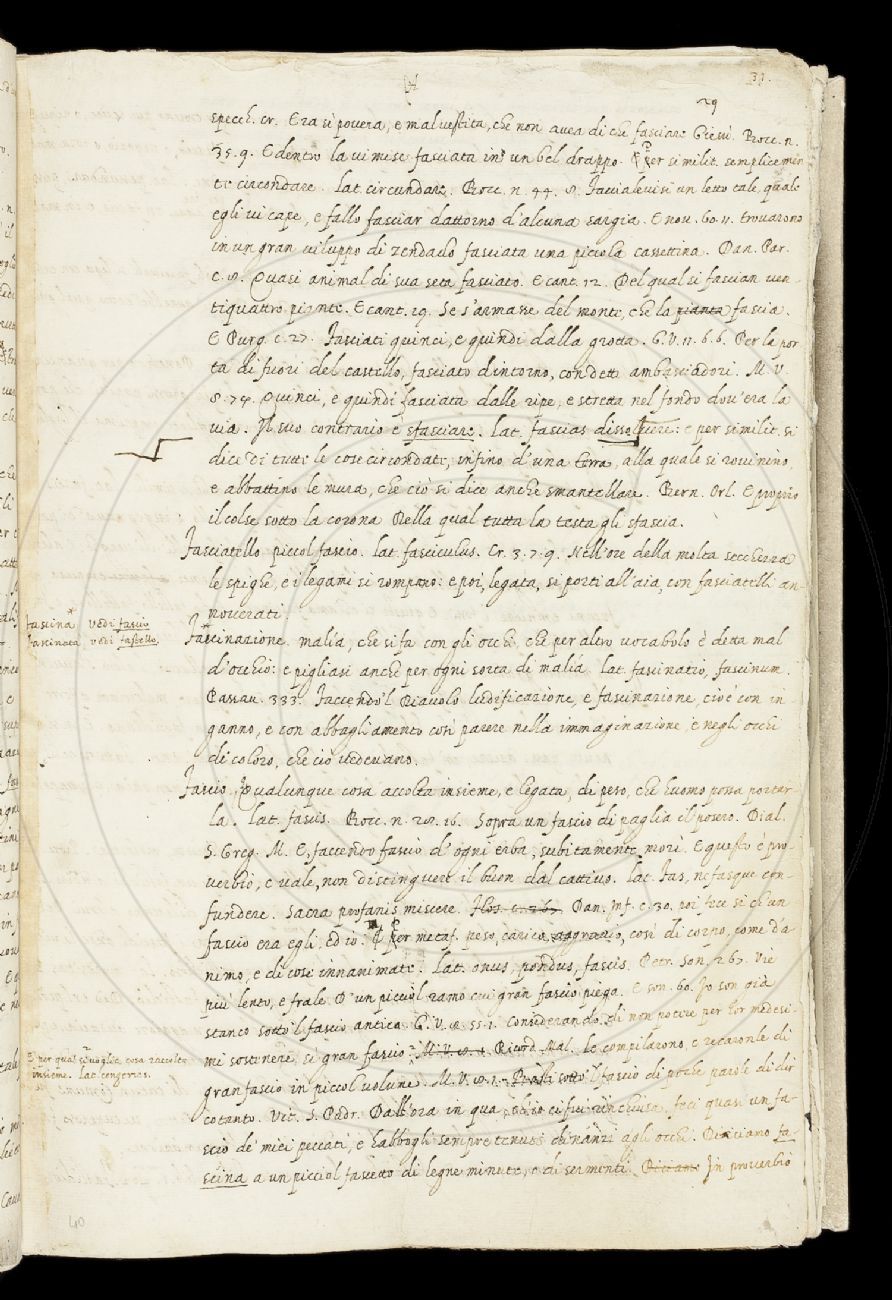 31.
29
specch. cr. Era sì povera, e mal vestita, che non avea di che fasciare Giesù. Bocc. n.
35. 9. E dentro la vi mise fasciata in un bel drappo. ¶ Per similit. semplicemen
te circondare. lat. circundare. Bocc. n. 44. 8. Facciālevisi un letto tale, quale
egli vi cape, e fallo fasciar dattorno d'alcuna sargia. E nov. 60. 11. trovarono
in un gran viluppo di zendado fasciata una piccola cassettina. Dan. Par.
c. 8. Quasi animal di sua seta fasciato. E cant. 12. Del qual si fascian ven-
tiquattro piante. E cant. 19. Se s'armasse del monte, che la pianta fascia.
E Purg. c. 27. Fasciati quinci, e quindi dalla grotta. G. V. 11. 6. 6. Per la por
ta di fuori del castello, fasciato dintorno, con detti ambasciadori. M. V.
8. 74. Quinci, e quindi fasciata dalle ripe, e stretta nel fondo dov'era la
via. Il suo contrario è sfasciare. lat. fascias dissolvere: e per similit. si
dice di tutte le cose circondate, infino d'una terra, alla quale si rovinino,
e abbattino le mura, che ciò si dice anche smantellare. Bern. Orl. E proprio
il colse sotto la corona Della qual tutta la testa gli sfascia.
Fasciatello piccol fascio. lat. fasciculus. Cr. 3. 7. 9. Nell'ore della molta seccherza
le spighe, e i legami si rompano: e poi, legata, si porti all'aia, con fasciatelli an-
noverati.
fascina* vedi fascio
fascinata vedi fastello
Fascinazione. malia, che si fa con gli occhi, che per altro vocabolo è detta mal
d'occhio: e pigliasi anche per ogni sorta di malia. lat. fascinatio, fascinum.
Passav. 333. Faccendo 'l Diavolo ludificazione, e fascinazione, cioè con in-
ganno, e con abbagliamento così parere nella immaginazione e negli occhi
di coloro, che ciò vedevano.
Fascio. Qualunque cosa accolta insieme, e legata, di peso, che huomo possa portar-
la. lat. fascis. Bocc. n. 28. 16. Sopra un fascio di paglia il posero. Dial.
S. Greg. M. E, faccendo fascio d'ogni erba, subitamente morì. E questo è pro-
verbio, e vale, non distinguere il buon dal cattivo. lat. Fas, nefasque con-
fundere. Sacra profanis miscere. Dan. Inf. c. 30. poi fece sì ch'un
fascio era egli, ed io. ¶ Per metaf. peso, carico, aggravio, così di corpo, come d'a
nimo, e di cose innanimate. Lat. onus, pondus, fascis. Petr. Son. 267. Vie
più lento, e frale D'un picciol ramo cui gran fascio piega. E son. 60. Io son già
stanco sotto 'l fascio antico. G. V. 8. 55. 1. Considerando di non potere per lor medesi-
¶ per qual si voglia cosa raccolta
insieme. lat. congeries.
mi sostenere, sì gran fascio. M. V. 8. 1. Ricord. Mal. le compilarono, e recaronle di
gran fascio in piccol volume. M. V. 8. 1. sotto 'l fascio di poche parole di dir
cotanto. Vit. S. Padr. Dall'ora in qua ch'io ci fui rinchiusa, feci quasi un fa-
scio de' miei peccati, e habbogli sempre tenuti dinanzi agli occhi. Diciamo fa-
scina a un picciol fascetto di legne minute, e di sermenti. Diciamo In proverbio
40